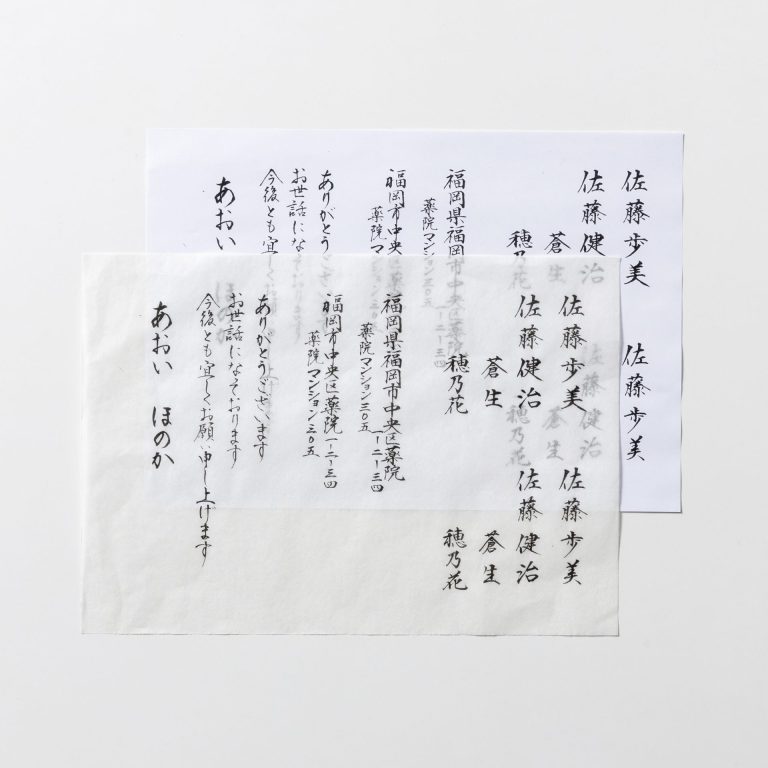 佐藤歩美　佐藤歩美
佐藤健治　佐藤健治
蒼生　蒼生
穂乃花　穂乃花
福岡県福岡市中央区薬院一ー二ー三四
薬院マンション三〇五
福岡市中央区薬
薬院マンション三〇
ありがとうござい
お世話になっております
今後とも宜しくお
あおい　ほのか
佐藤歩美　佐藤歩美
佐藤健治　佐藤健治
蒼生　蒼生
穂乃花　穂乃花
福岡県福岡市中央区薬院一ー二ー三四
薬院マンション三〇五
福岡市中央区薬院一ー二ー三四
薬院マンション三〇五
ありがとうございます
お世話になっております
今後とも宜しくお願い申し上げます
あおい　ほのか